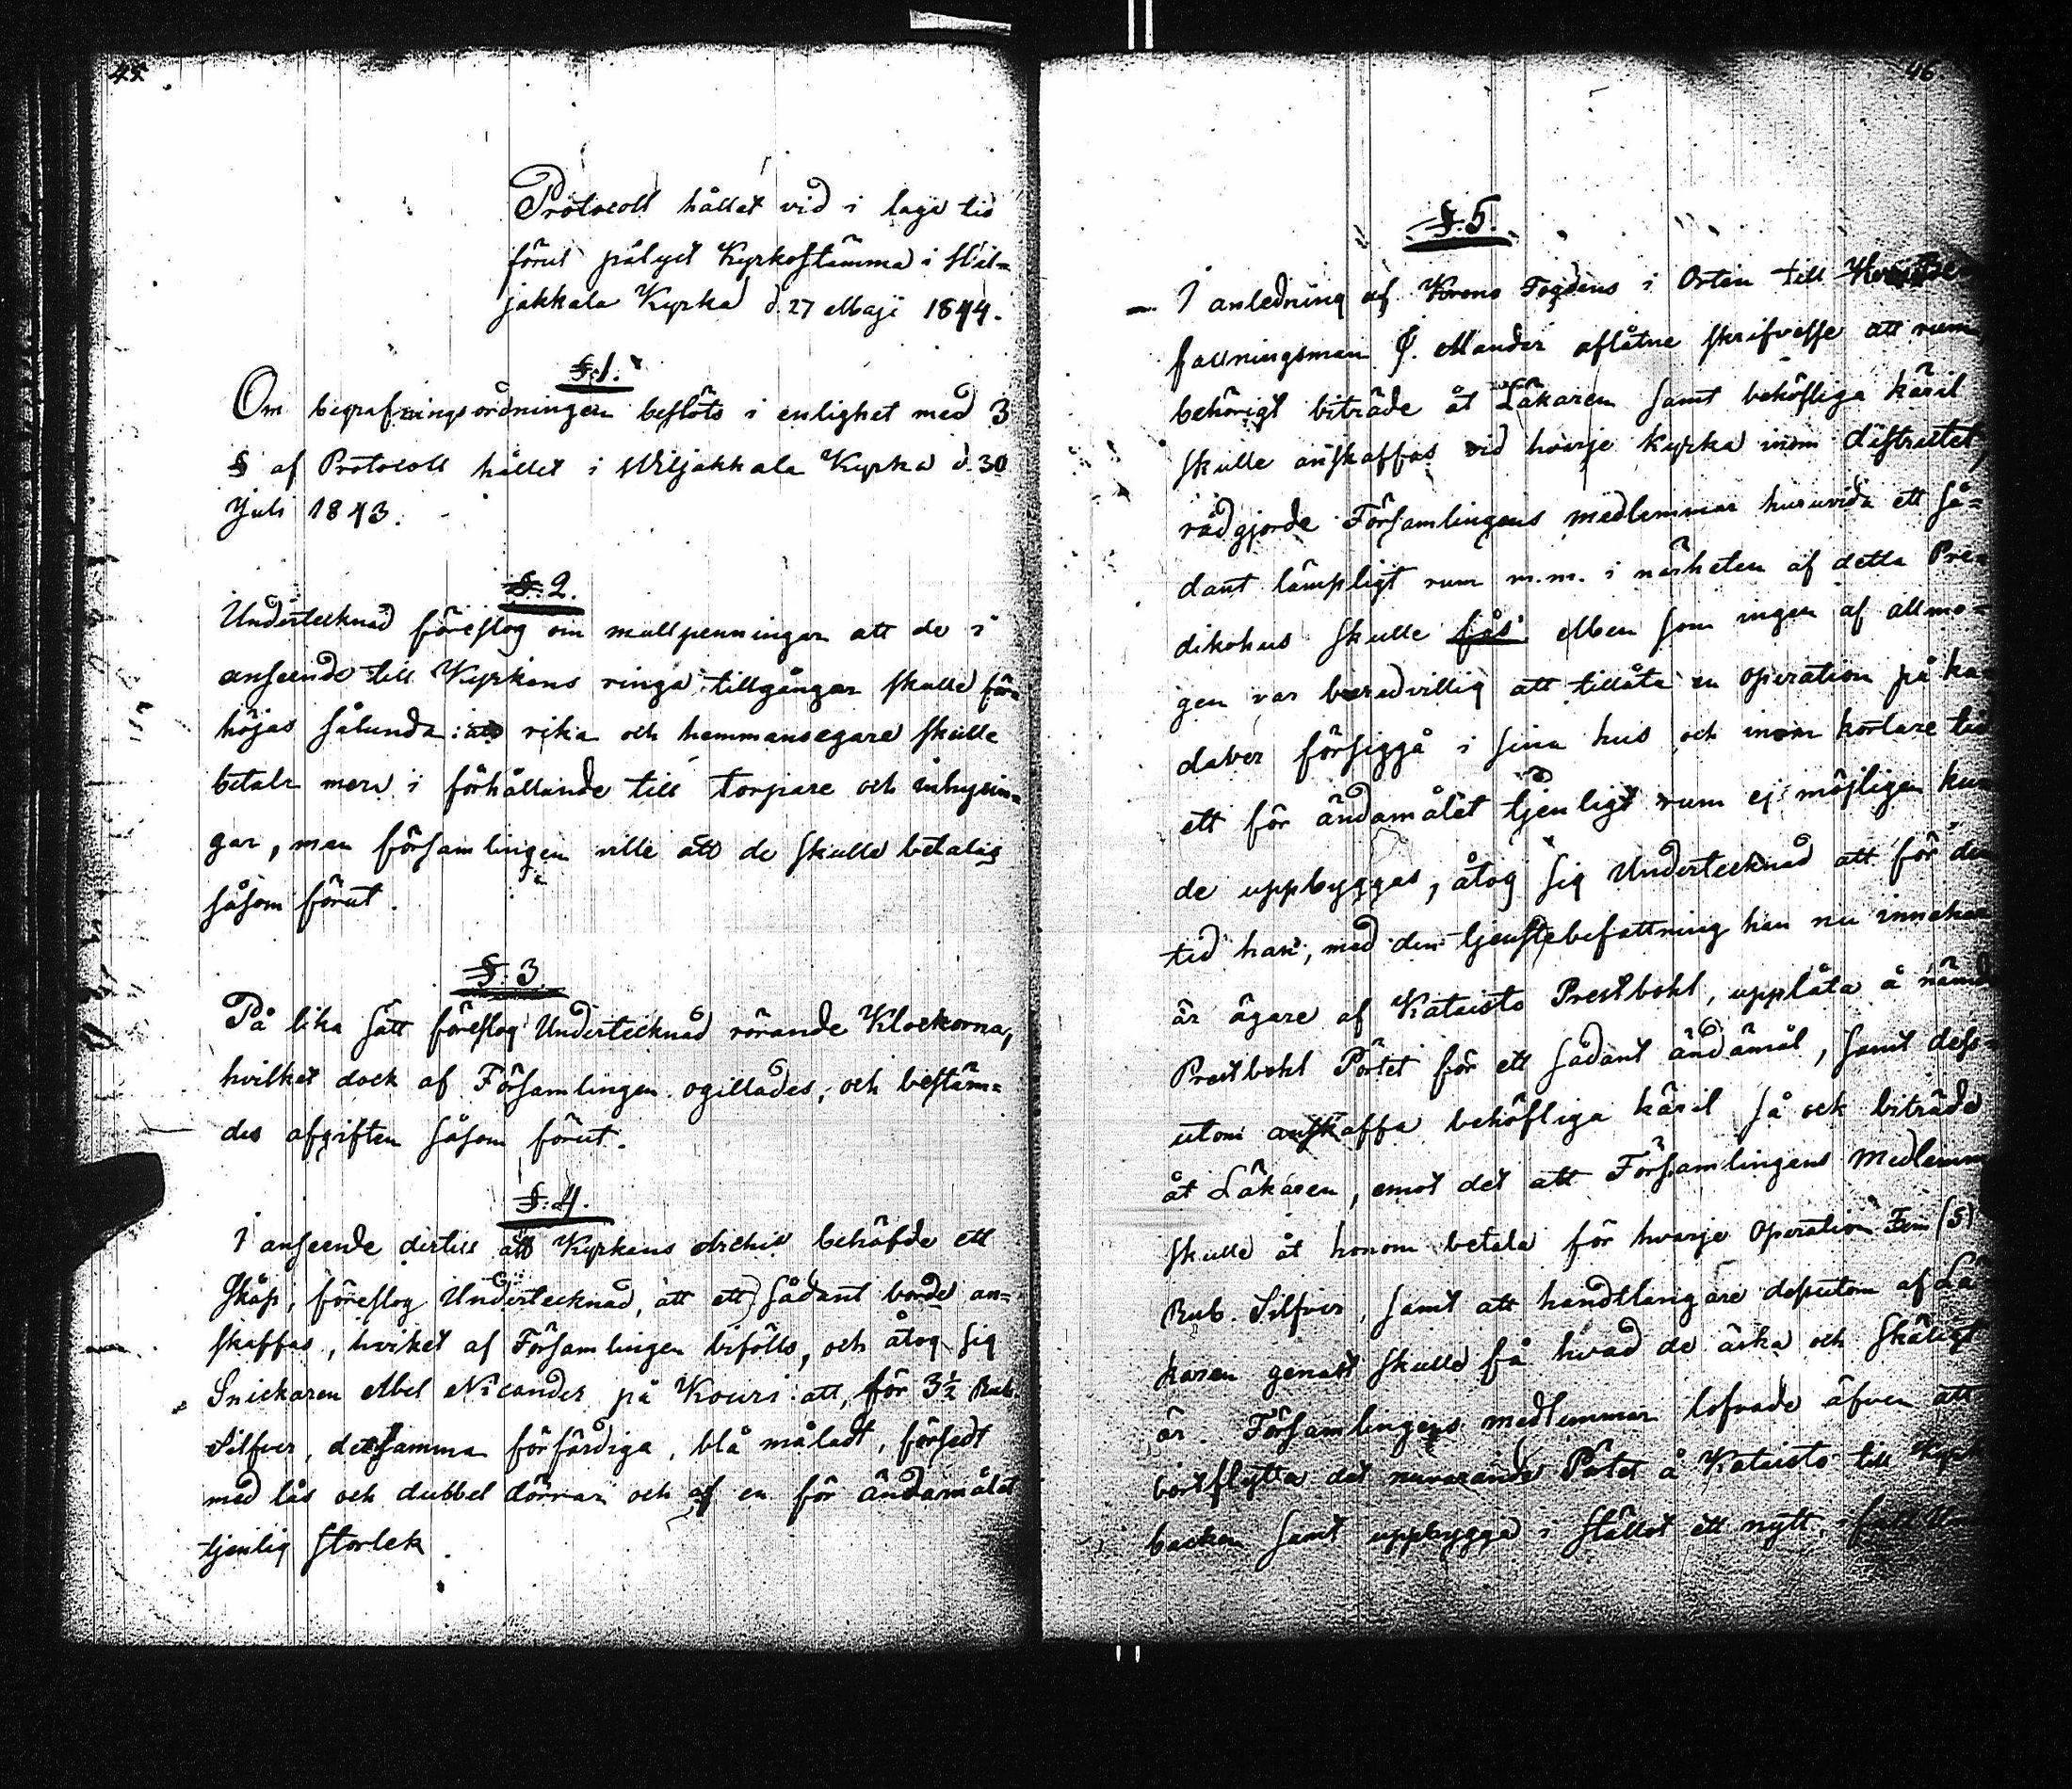 45.
Protocoll hållet vid i laga tid
förut pålyst Kyrkostämma i Wil=
jakkala Kyrka d. 27 Maji 1844.
§.1.
Om begrafningsordningen beslöts i enlighet med 3
§ af Protocoll hållet i Wiljakkala Kyrka d. 30
Juli 1843.
§.2.
Undertecknad föreslog om mullpenningar att de i
anseende till Kyrkans ringa tillgångar skulle för=
höjas sålunda: att rika och hemmansegare skulle
betala mera i förhållande till torpare och inhysin=
gar, men församlingen ville att de skulle betalas
såsom förut.
§.3.
På lika sätt föreslog Undertecknad rörande Klockorna,
hvilket dock af Församlingen ogillades, och bestäm=
des afgiften såsom förut.
§.4.
I anseende dertill att Kyrkans Archiv behöfde ett
Skåp, föreslog Undertecknad, att ett sådant borde an=
skaffas, hvilket af Församlingen bifölls, och åtog sig
Snickaren Abel Nicander på Kouri att, för 3½ Rub.
Silfver, detsamma förfärdiga, blå måladt, försedt
med lås och dubbel dörrar och af en för ändamålet
tjenlig storlek.
46.
§.5.
I anledning af Krono Fogdens i Orten till
fallningsman J. Mander aflåtne skrifvelse att rum
behörigt biträde åt Läkaren samt behöfliga käril
skulle anskaffas vid hvarje kyrka inom districtet,
rådgjorde Församlingens medlemmar huruvida ett så=
dant lämpligt rum m.m. i närheten af detta Pre=
dikohus skulle fås. Men som ingen af allmo=
gen var beredvillig att tillåta en operation på ka=
daver försiggå i sina hus och inom kortare tid
ett för ändamålet tjenligt rum ej möjligen kun
de uppbyggas, åtog sig Undertecknad att för den
tid han, med den tjenstebefattning han nu innehar
är ägare af Kataisto Prestbohl, upplåta å nämde
Prestbohl Pörtet för ett sådant ändamål, samt dess=
utom anskaffa behöfliga käril så ock biträde
åt Läkaren, emot det att Församlingens Medlemm
skulle åt honom betala för hvarje Operation Fem (5)
Rub. Silfver, samt att handtlangare dessutom af Lä
karen genast skulle få hvad de äska och skäligt
är. Församlingens medlemmar lofvade äfven att
bortflytta det nuvarande Pörtet å Kataisto till Kyrk
backen samt uppbygga i stället ett nytt, i fall